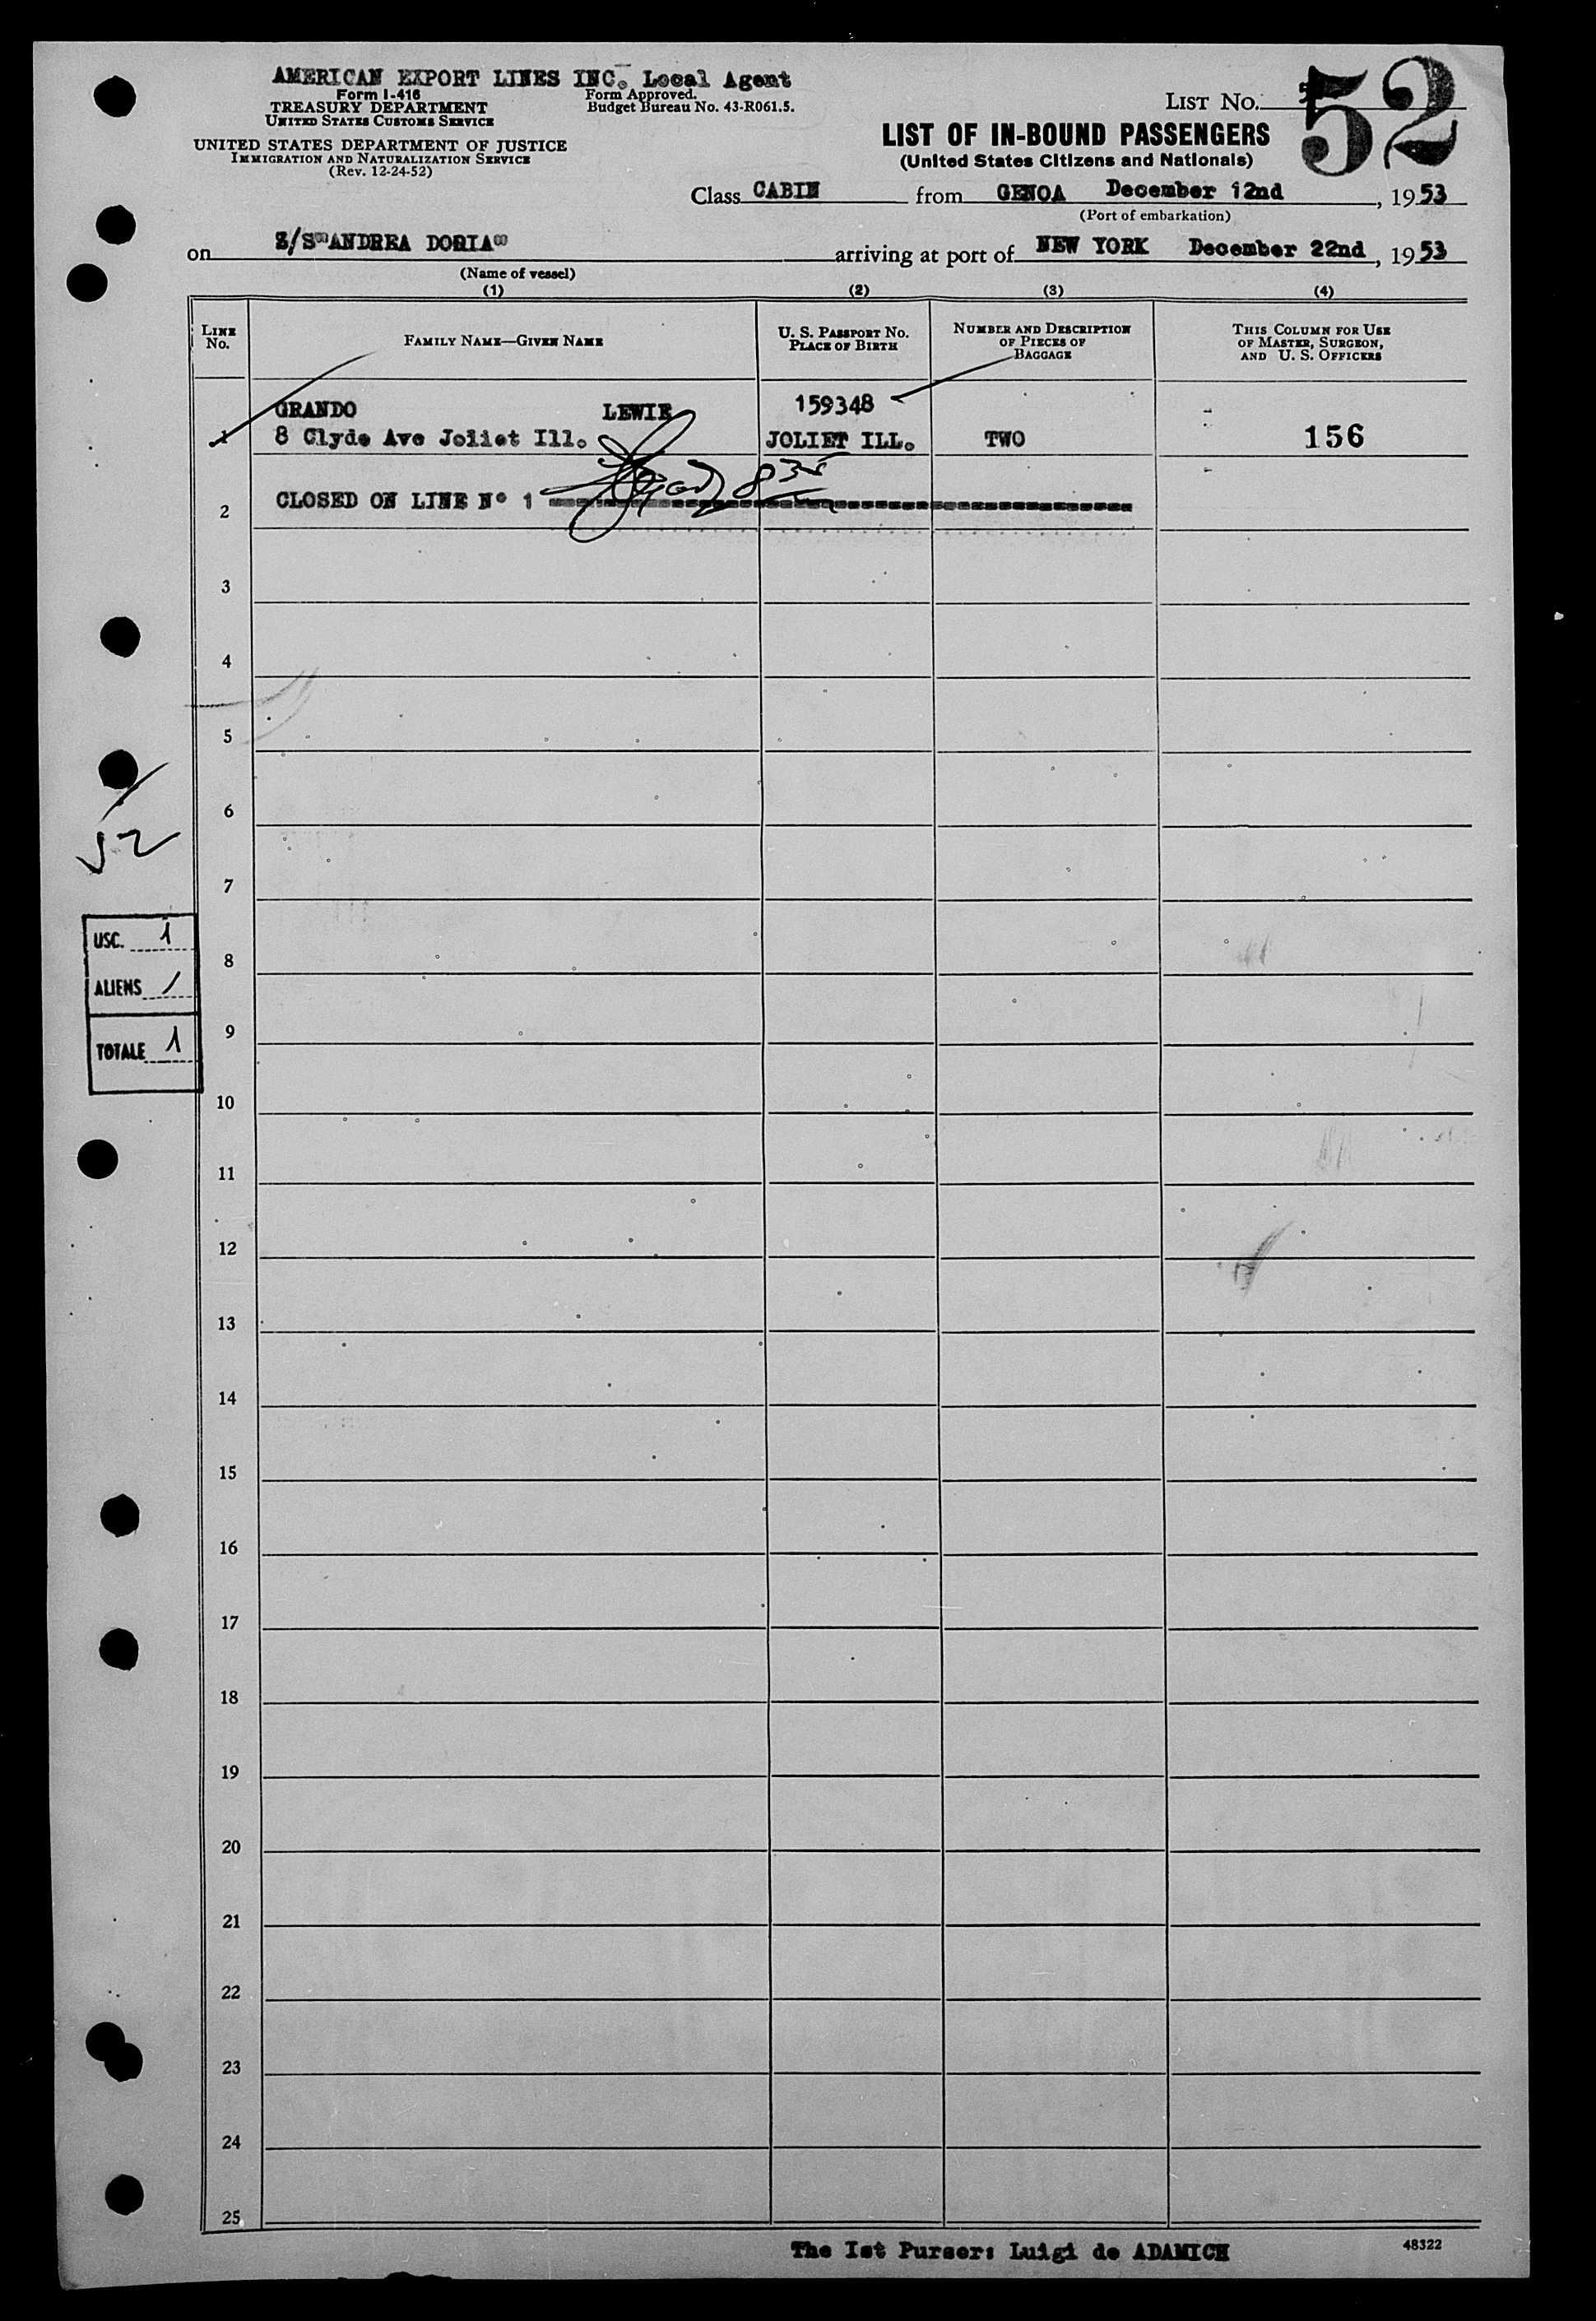 AMERICAN EXPORT LINES INC. Local Agent
Form I-416
TREASURY DEPARTMENT
UNITED STATES CUSTOMS SERVICE
Form Approved.
Budget Bureau No. 43-R061.5.
UNITED STATES DEPARTMENT OF JUSTICE
IMMIGRATION AND NATURALIZATION SERVICE
(Rev. 12-24-52)
LIST NO. 52
LIST OF IN-BOUND PASSENGERS
(United States Citizens and Nationals)
Class CABIN from GENOA December 12nd, 1953
(Port of embarkation)
on S/S "ANDREA DORIA" arriving at port of NEW YORK December 22nd, 1953
(Name of vessel)
(1) (2) (3) (4)
LINE NO.
FAMILY NAME—GIVEN NAME
U. S. PASSPORT NO.
PLACE OF BIRTH
NUMBER AND DESCRIPTION
OF PIECES OF
BAGGAGE
THIS COLUMN FOR USE
OF MASTER, SURGEON,
AND U. S. OFFICERS
GRANDO LEWIE 159348
1 8 Clyde Ave Joliet Ill. JOLIET ILL. TWO 156
835
2 CLOSED ON LINE N° 1
3
4
5
6
52
7
USC. 1
8
ALIENS /
9
TOTALE 1
10
11
12
13
14
15
16
17
18
19
20
21
22
23
24
25
The Ist Purser: Luigi de ADAMICH
48322